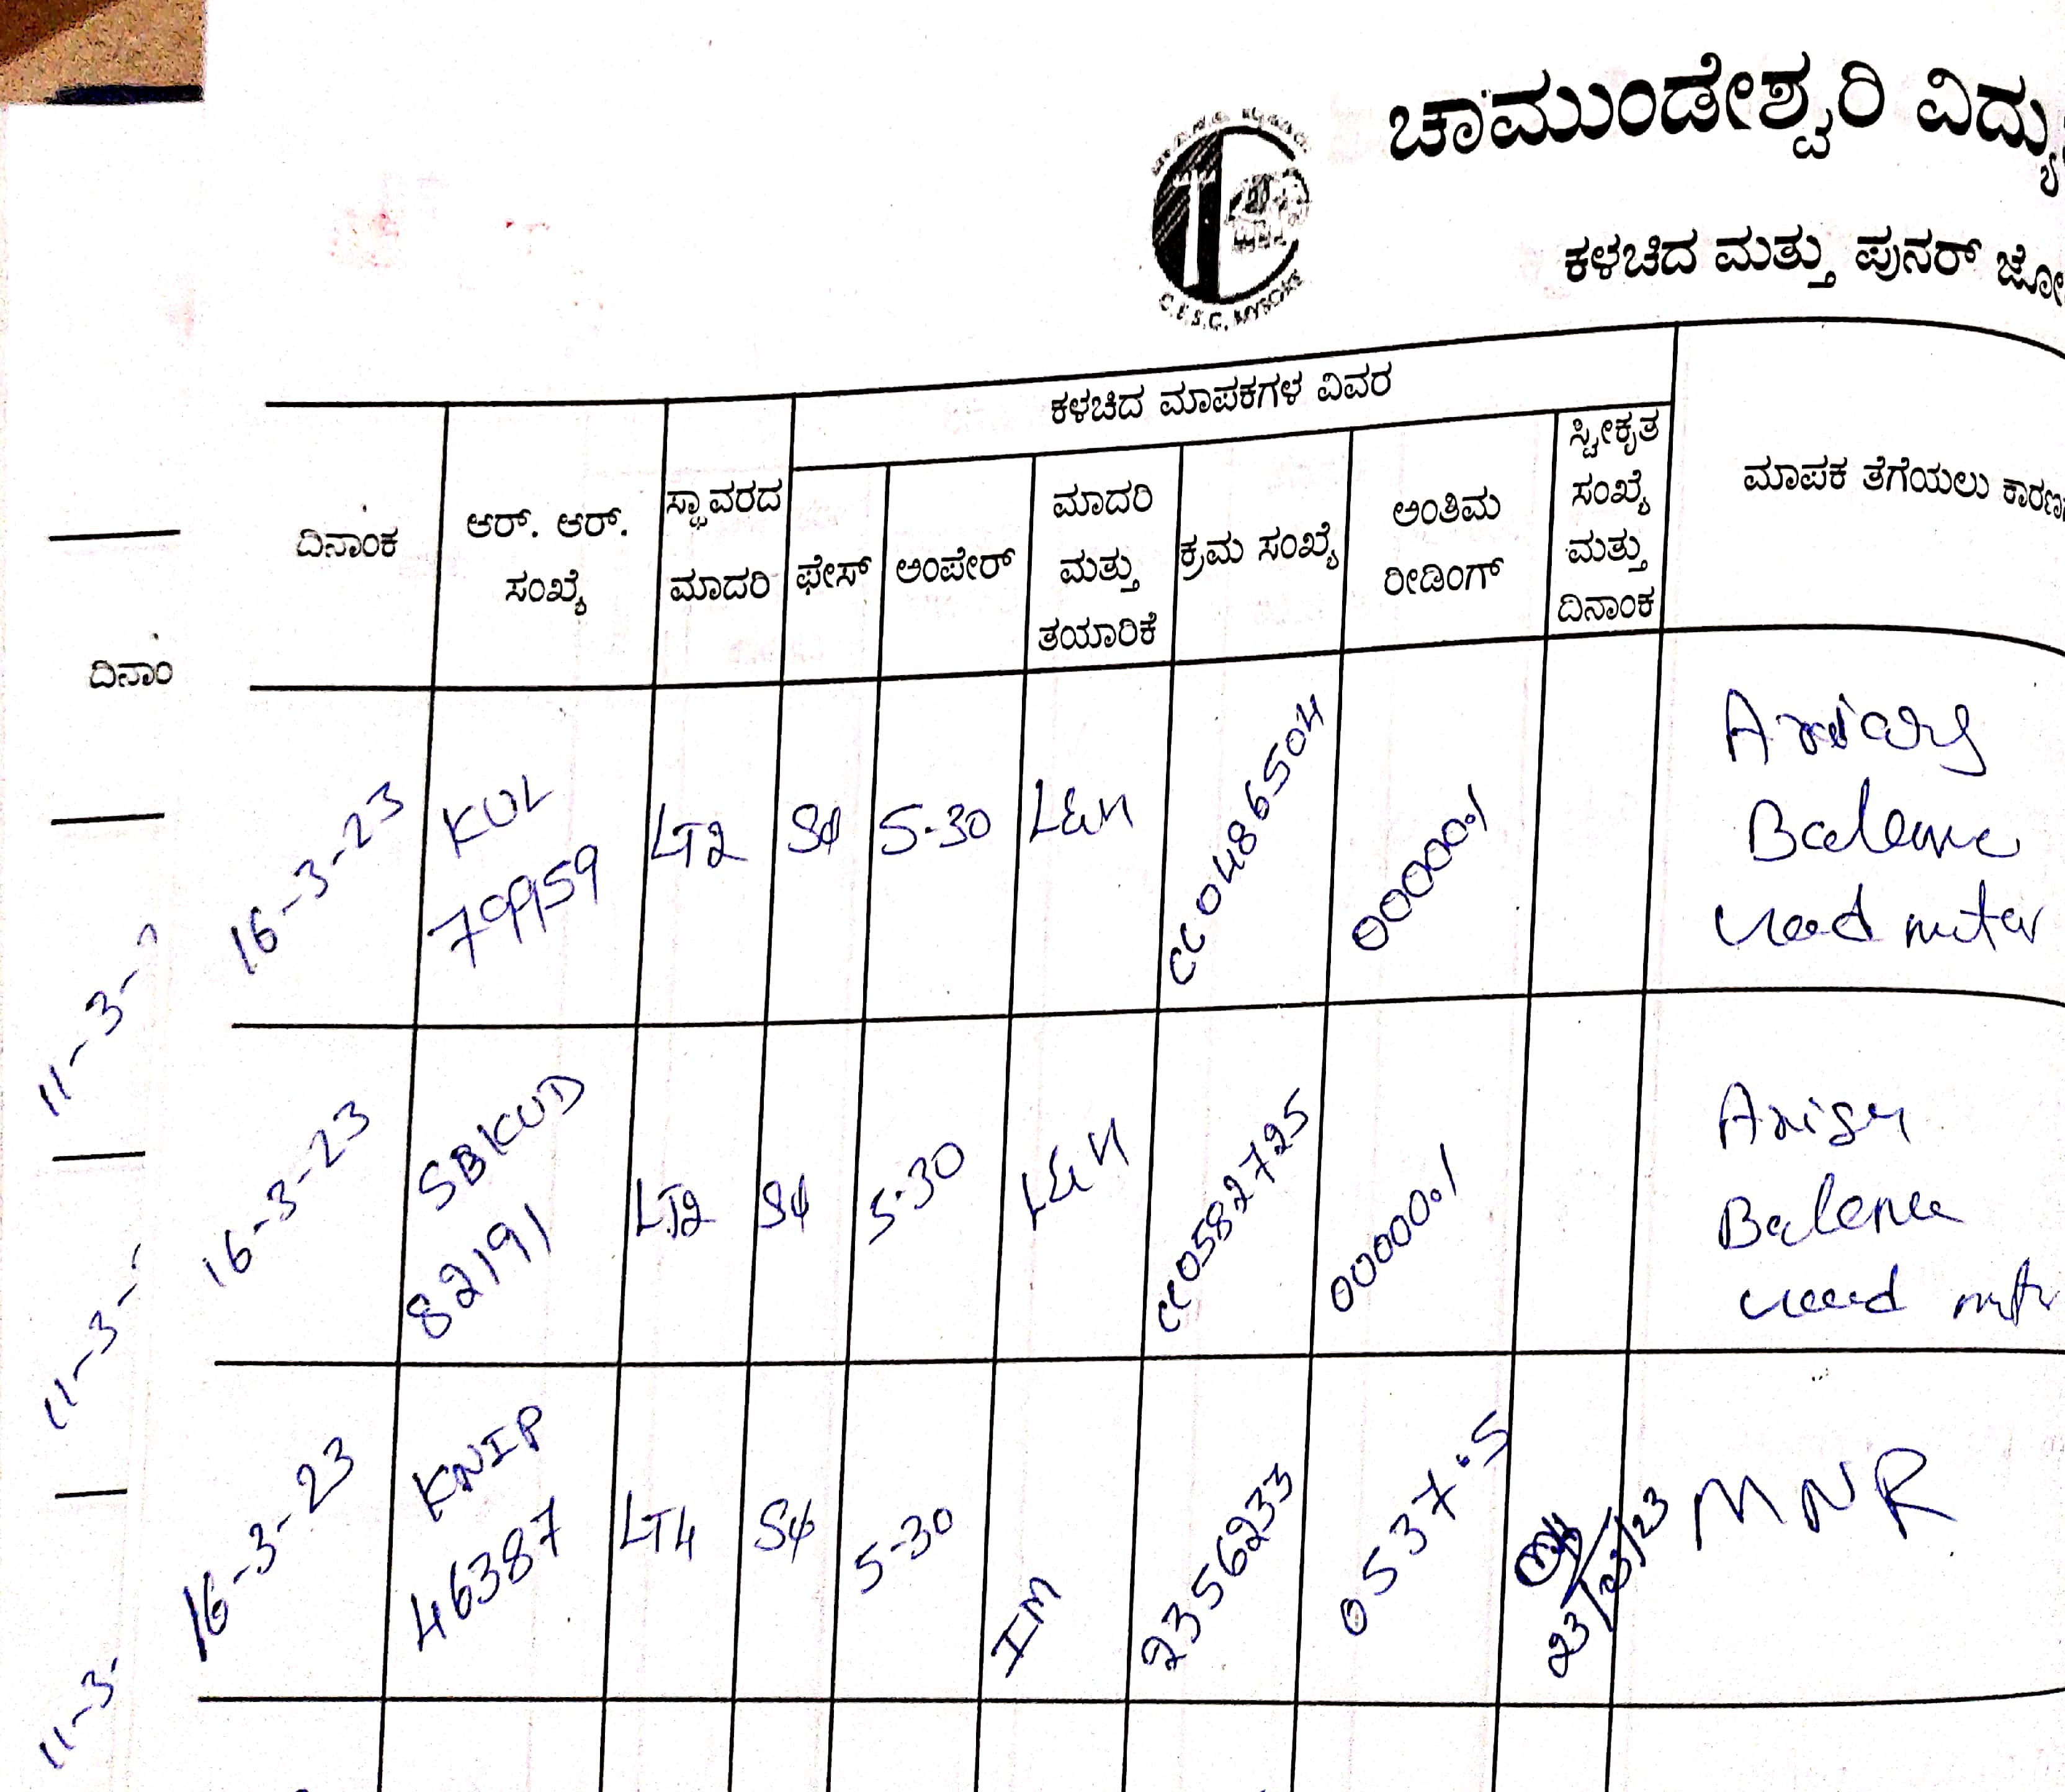 ಚಾಮುಂಡೇಶ್ವರಿ ವಿದ್ಯು
C.E.S.C. MYSORE
ಕಳಚಿದ ಮತ್ತು ಪುನರ್ ಜೋ
ಕಳಚಿದ ಮಾಪಕಗಳ ವಿವರ
ದಿನಾಂಕ
ಆರ್. ಆರ್.
ಸಂಖ್ಯೆ
ಸ್ಥಾವರದ
ಮಾದರಿ
ಫೇಸ್
ಅಂಪೇರ್
ಮಾದರಿ
ಮತ್ತು
ತಯಾರಿಕೆ
ಕ್ರಮ ಸಂಖ್ಯೆ
ಅಂತಿಮ
ರೀಡಿಂಗ್
ಸ್ವೀಕೃತ
ಸಂಖ್ಯೆ
ಮತ್ತು
ದಿನಾಂಕ
ಮಾಪಕ ತೆಗೆಯಲು ಕಾರಣ
ದಿನಾಂ
11-3-
16-3-23
KUL
79959
LT2
Sφ
5-30
L&H
CC04865504
00000.1
Balance
meter
11-3-
16-3-23
SBKUD
82191
LT2
Sφ
5-30
L&H
CC0582725
00000.1
Balance
11-3-
16-3-23
KNIP
46387
LT4
Sφ
5-30
IM
2356233
0537.5
23/03/23
MNR